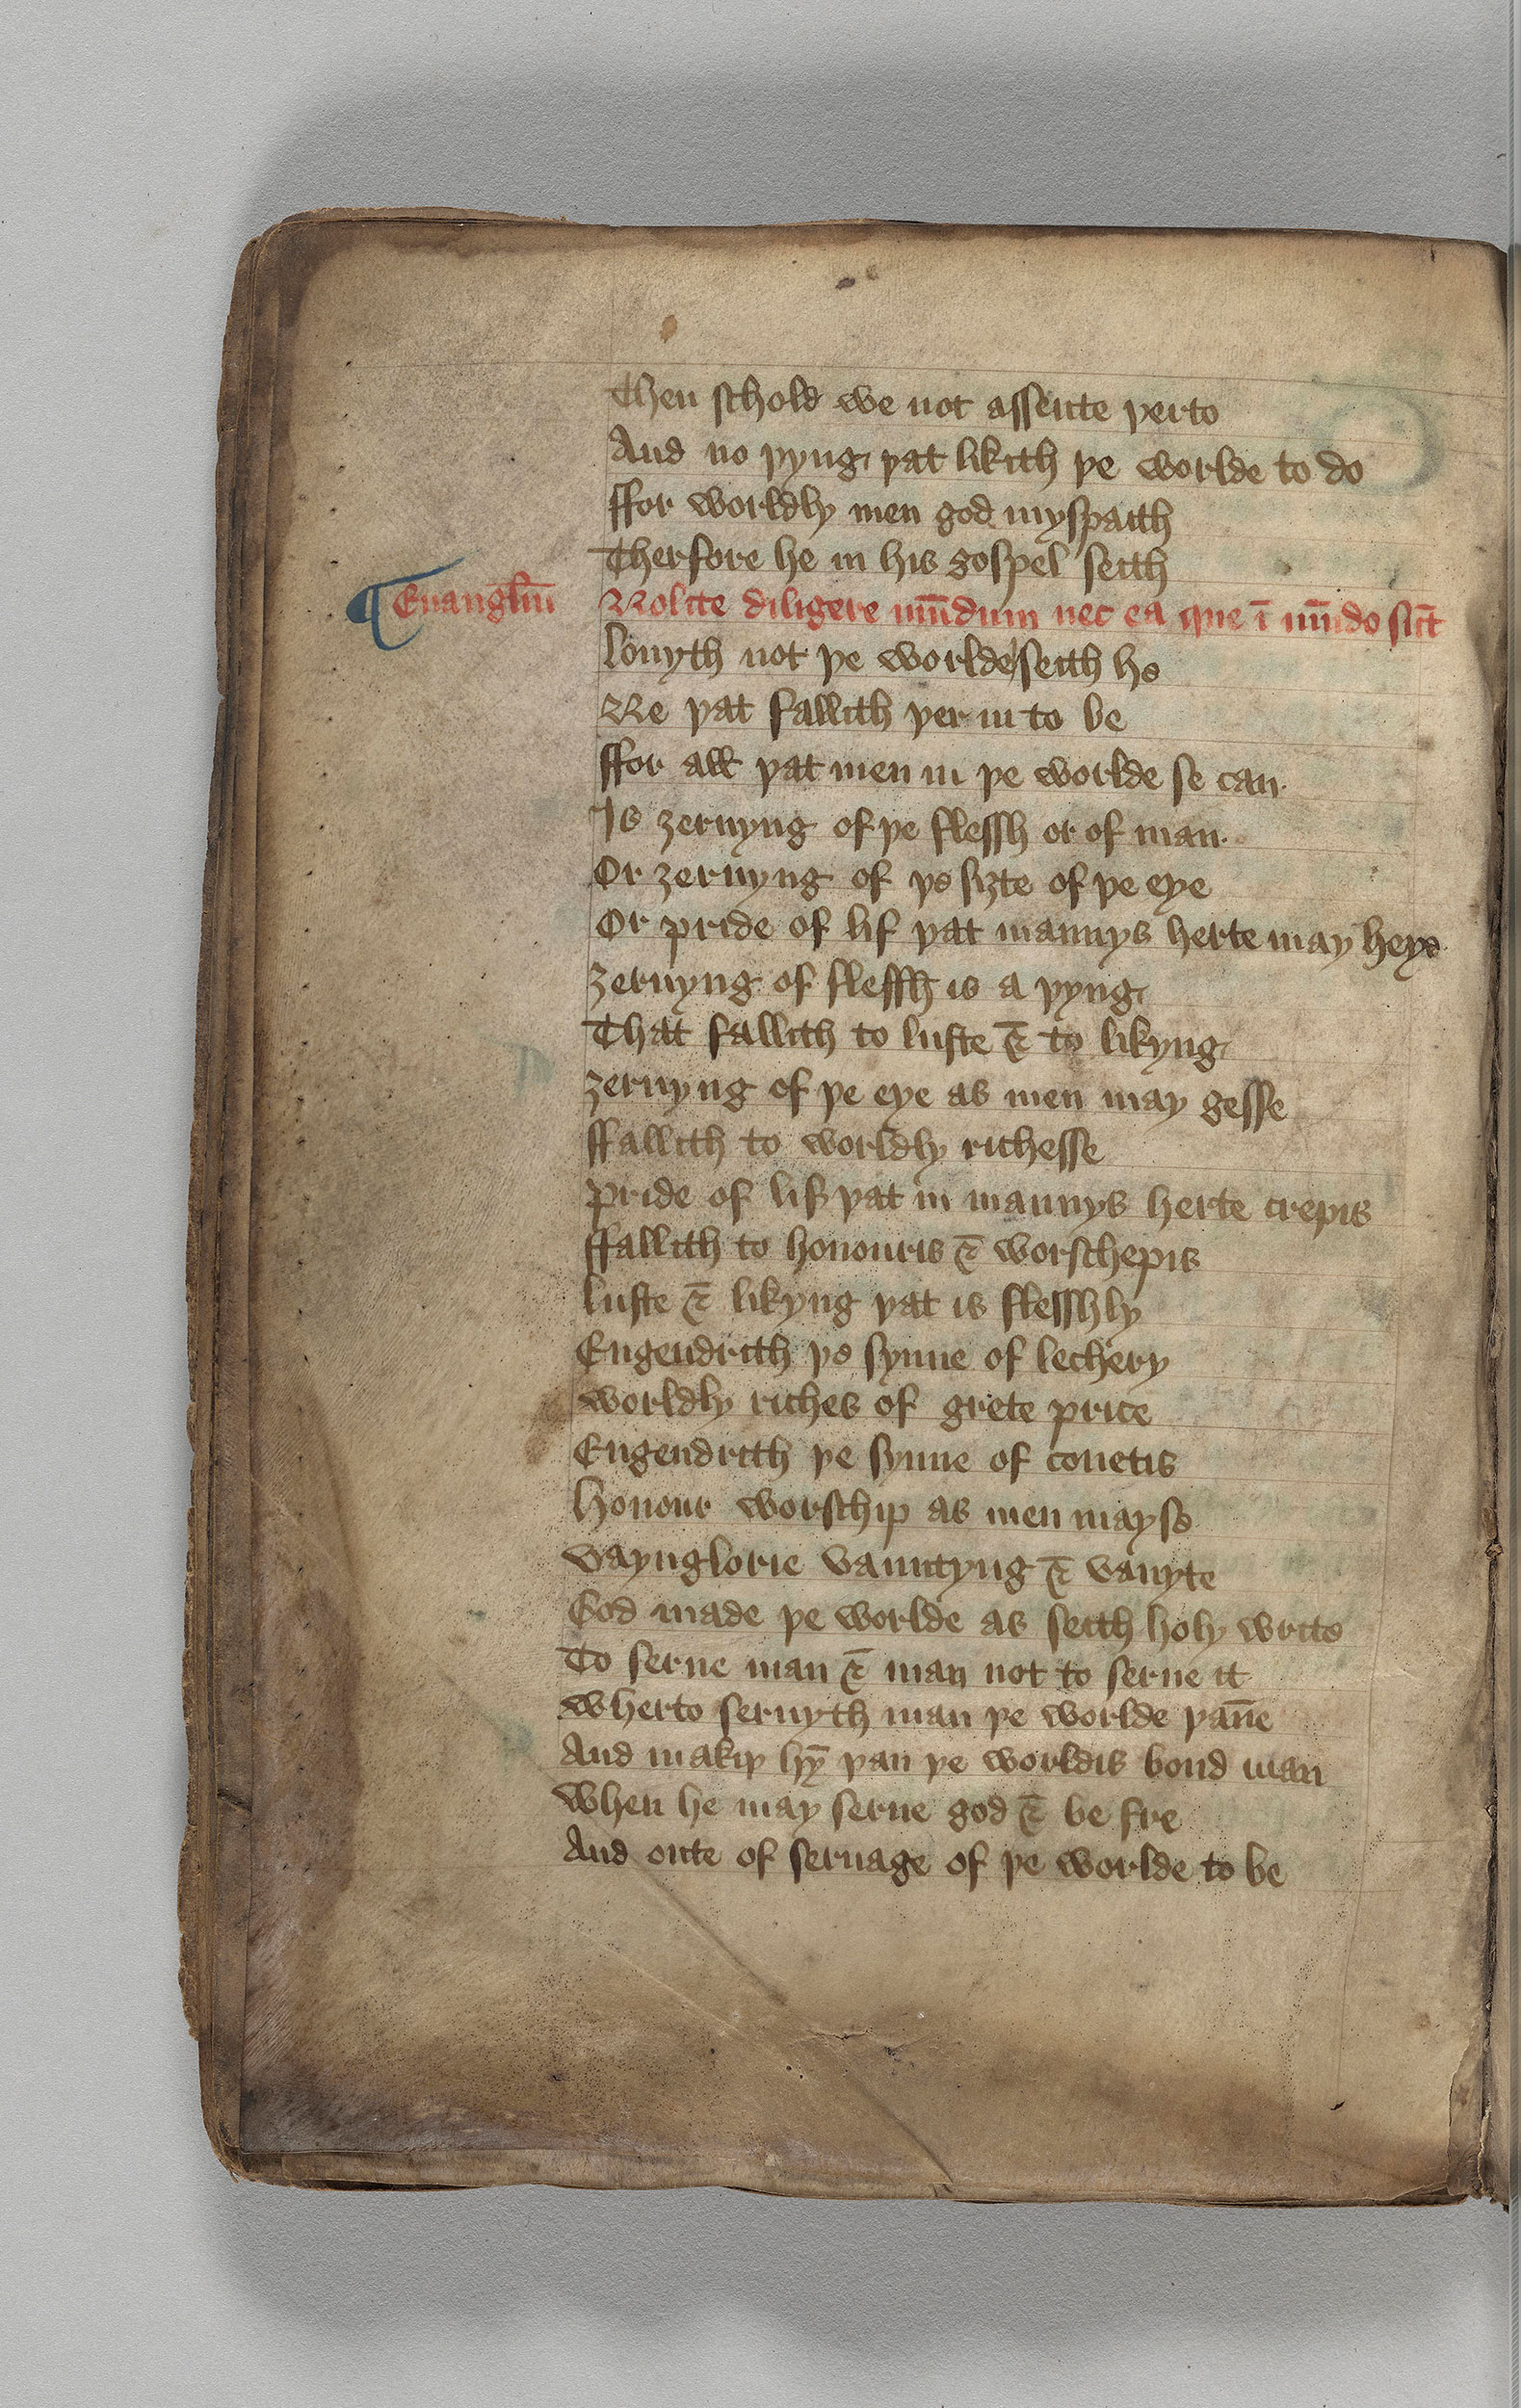 Then schold we not assente þerto
And no þyng þat likith þe worlde to do
ffor worldly men god myspaith
Therfore he in his gospel seith
¶ Euangliū Nolite diligere mūdum nec ea que ī mūdo sūt
louyth not þe worlde seith he
Ne þat fallith þer in to be
ffor all þat men in þe worlde se can
Is ȝernyng of þe flessh or of man
Or ȝernyng of þe siȝte of þe eye
Or pride of lif þat mannys herte may heye
ȝernyng of flessh is a þyng
That fallith to luste & to likyng
ȝernyng of þe eye as men may gesse
ffallith to worldly richesse
pride of lif þat in mannys herte crepis
ffallith to honouris & worschepis
luste & likyng þat is flesshly
Engendrith þe synne of lechery
worldly riches of grete price
Engendrith þe synne of couetis
honour worschip as men may se
vaynglorie vauntyng & vanyte
God made þe worlde as seith holy write
To serue man & man not to serue it
wherto seruyth man þe worlde þāne
And makiþ hȳ þan þe worldis bond man
when he may serue god & be fre
And oute of seruage of þe worlde to be